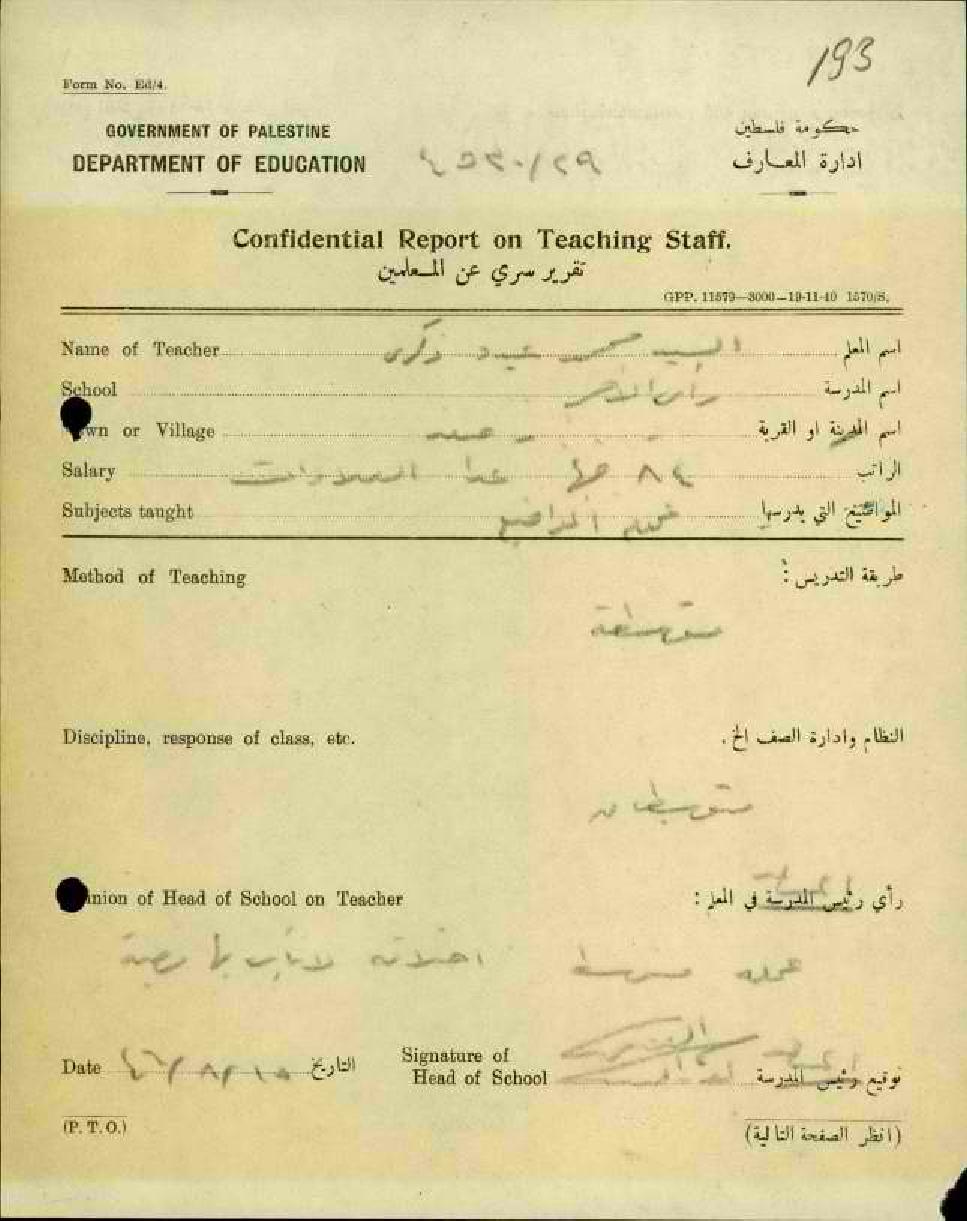 193
Form No. Ed/4.
GOVERNMENT OF PALESTINE
DEPARTMENT OF EDUCATION
حكومة فلسطين
ادارة المعارف
Confidential Report on Teaching Staff.
تقرير سري عن المعلمين
GPP. 11579—3000—19-11-40 1570/S.
Name of Teacher السيد محمد عبد زكرى اسم المعلم
School رأس الاحمر اسم المدرسة
Town or Village صفد اسم المدينة او القرية
Salary ٨٤ عدا العلاوات الراتب
Subjects taught المواضيع المواضيع التي يدرسها
Method of Teaching طريقة التدريس :
متوسطة
Discipline, response of class, etc. النظام وادارة الصف الخ .
متوسطان
Opinion of Head of School on Teacher رأي رئيس المدرسة في المعلم :
عمله متوسط اخلاقه
Date ٤٦/٨/١٥ التاريخ
Signature of
Head of School توقيع رئيس المدرسة
(P. T. O.) (انظر الصفحة التالية)